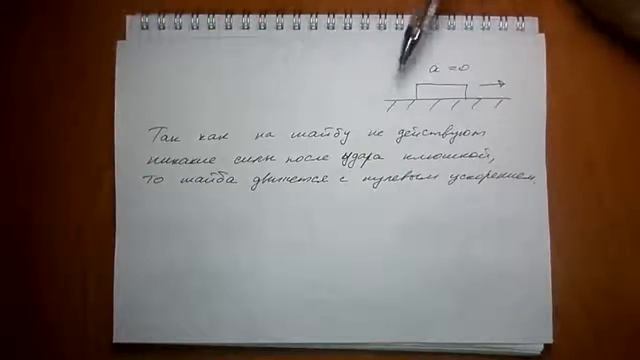 a = 0
Так как на шайбу не действуют
никакие силы после удара клюшкой,
то шайба движется с нулевым ускорением.